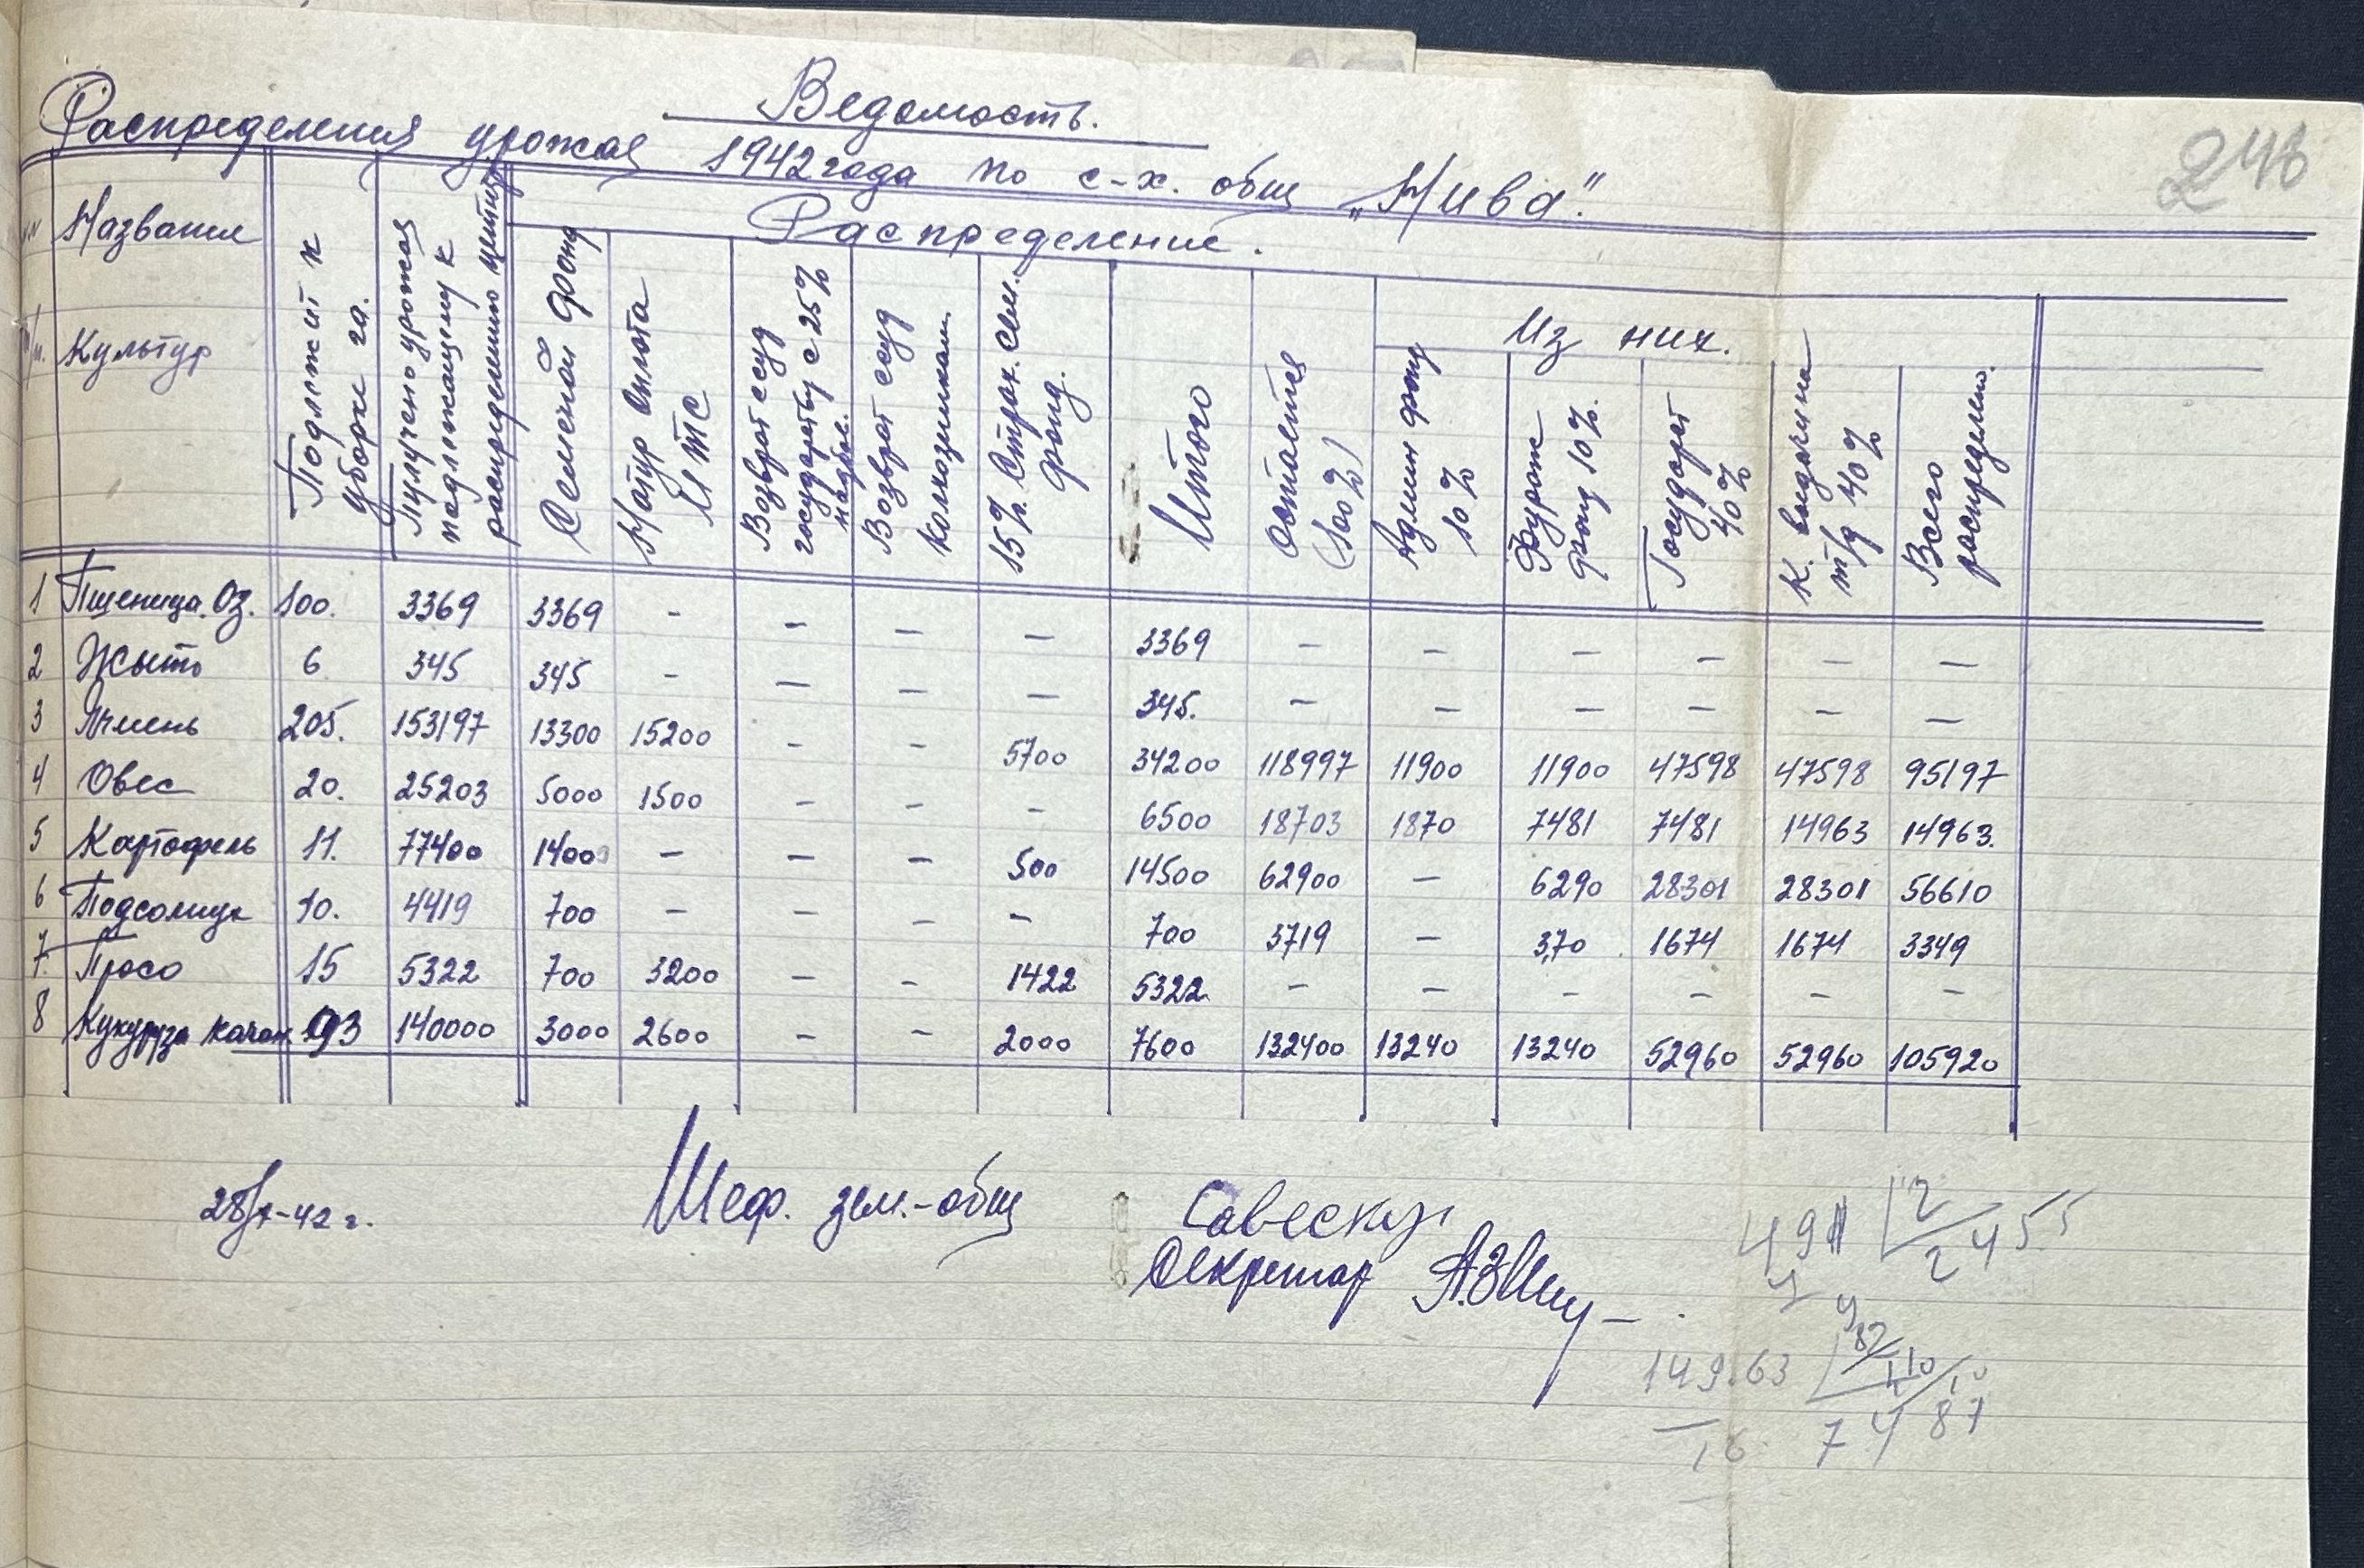 Ведомость.
246
Распределения урожая 1942 года по с-х. общ „Нива".
Название Культур
Подлежит к уборке га.
Получено урожая подлежащему к распределению центнер
Распределение.
Семеной фонд
Натур оплата МТС
Возврат ссуд государству с 25% надбав.
Возврат ссуд колхозникам.
15% Страх. Сем. фонд.
Итого
Остается (100%)
Из них.
Админ фонд 10%
Фураж фонд 10%.
Государст 40%
К. выдачи на т/д 40%
Всего распределено.
1 Пшеница. Оз. 100. 3369 3369 - - - - 3369 - - - - - -
2 Жыто 6 345 345 - - - - 345. - - - - - -
3 Ячмень 205. 153197 13300 15200 - - 5700 34200 118997 11900 11900 47598 47598 95197
4 Овес 20. 25203 5000 1500 - - - 6500 18703 1870 7481 7481 14963 14963.
5 Картофель 11. 77400 14000 - - - 500 14500 62900 - 6290 28301 28301 56610
6 Подсолнух 10. 4419 700 - - - - 700 3719 - 370 1674 1674 3349
7. Просо 15 5322 700 3200 - - 1422 5322 - - - - - -
8 Кукуруза качан 93 140000 3000 2600 - - 2000 7600 132400 13240 13240 52960 52960 105920
28/X-42 г. Шеф. зем.-общ
Секретар
491 2
2455
14963
7487